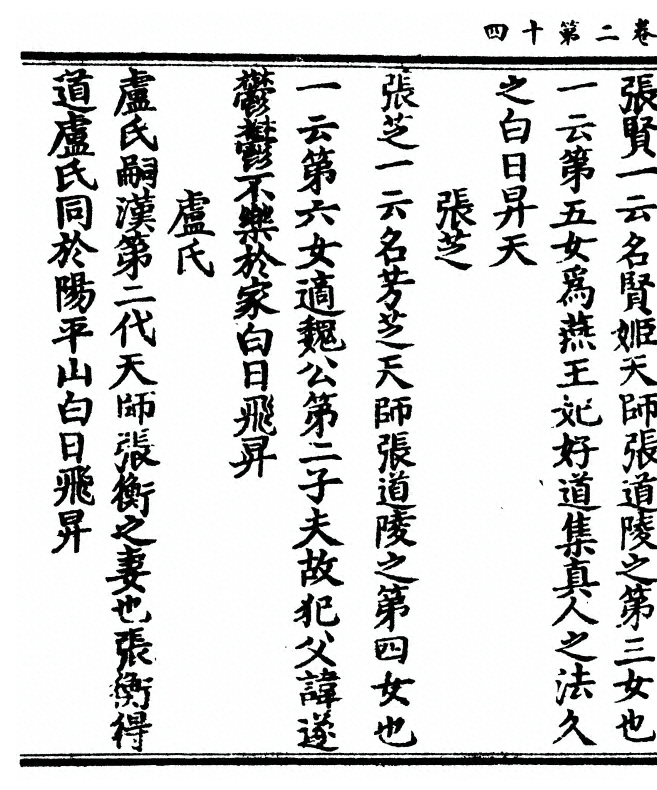 卷二第十四
張賢一云名賢姬天師張道陵之第三女也
一云第五女為燕王妃好道集真人之法久
之白日昇天
張芝
張芝一云名芳芝天師張道陵之第四女也
一云第六女適魏公第二子夫故犯父諱遂
鬱鬱不樂於家白日飛昇
盧氏
盧氏嗣漢第二代天師張衡之妻也張衡得
道盧氏同於陽平山白日飛昇